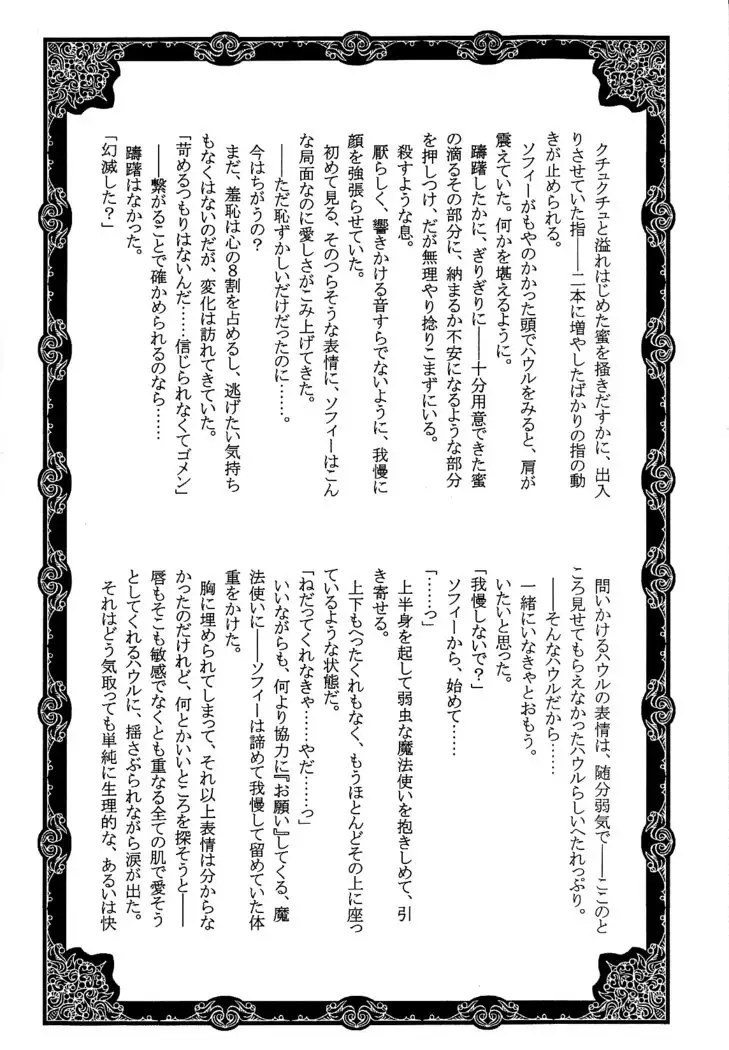 クチュクチュと溢れはじめた蜜を掻きだすかに、出入
りさせていた指――二本に増やしたばかりの指の動
きが止められる。
ソフィーがもやのかかった頭でハウルをみると、肩が
震えていた。何かを堪えるように。
躊躇したかに、ぎりぎりに――十分用意できた蜜
の滴るその部分に、納まるか不安になるような部分
を押しつけ、だが無理やり捻りこまずにいる。
殺すような息。
厭らしく、響きかける音すらでないように、我慢に
顔を強張らせていた。
初めて見る、そのつらそうな表情に、ソフィーはこん
な局面なのに愛しさがこみ上げてきた。
――ただ恥ずかしいだけだったのに……。
今はちがうの?
まだ、羞恥は心の8割を占めるし、逃げたい気持ち
もなくはないのだが、変化は訪れてきていた。
「苛めるつもりはないんだ……信じられなくてゴメン」
――繋がることで確かめられるのなら……
躊躇はなかった。
「幻滅した?」
問いかけるハウルの表情は、随分弱気で――ここのと
ころ見せてもらえなかったハウルらしいへたれっぷり。
――そんなハウルだから……
一緒にいなきゃとおもう。
いたいと思った。
「我慢しないで?」
ソフィーから、始めて……
「……っ」
上半身を起して弱虫な魔法使いを抱きしめて、引
き寄せる。
上下もへったくれもなく、もうほとんどその上に座っ
ているような状態だ。
「ねだってくれなきゃ……やだ……っ」
いいながらも、何より協力に『お願い』してくる、魔
法使いに――ソフィーは諦めて我慢して留めていた体
重をかけた。
胸に埋められてしまって、それ以上表情は分からな
かったのだけれど、何とかいいところを探そうと――
唇もそこも敏感でなくとも重なる全ての肌で愛そう
としてくれるハウルに、揺さぶられながら涙が出た。
それはどう気取っても単純に生理的な、あるいは快